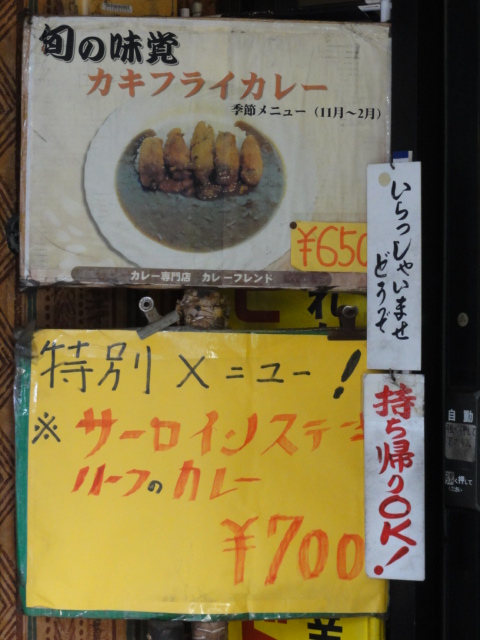 旬の味覚
カキフライカレー
季節メニュー（11月～2月）
¥650
カレー専門店 カレーフレンド
いらっしゃいませ
どうぞ
特別メニュー！
※サーロインステーキ
ルーフのカレー
¥700
持ち帰りOK！
自動